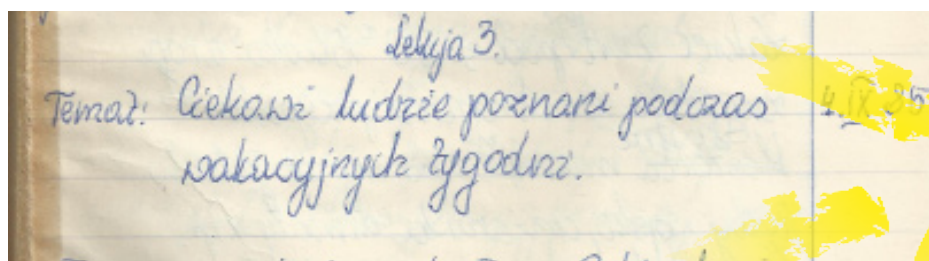 Lekcja 3.
Temat: Ciekawi ludzie poznani podczas 4.IX.85
wakacyjnych tygodni.